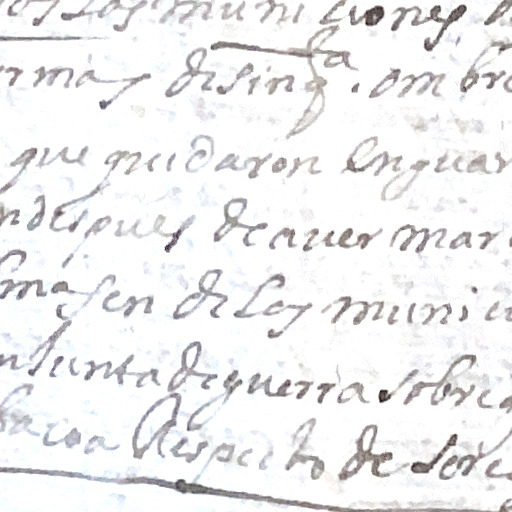 los municiones
armas de sinq.ta ombre
que quedaron en guar
despues de aver mar
masen de los munici
Junta de guerra sobre q
Respecto de sere